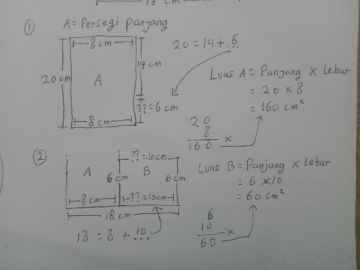 18 cm
① A = Persegi panjang
8 cm
20 = 14 + 6
20 cm
A
14 cm
?? = 6 cm
8 cm
Luas A = Panjang x Lebar
= 20 x 8
= 160 cm²
20
8
160 x
②
A
?? = 10 cm
B
6 cm
6 cm
8 cm
?? = 10 cm
18 cm
18 = 8 + 10
Luas B = Panjang x Lebar
= 6 x 10
= 60 cm²
6
10
60 x